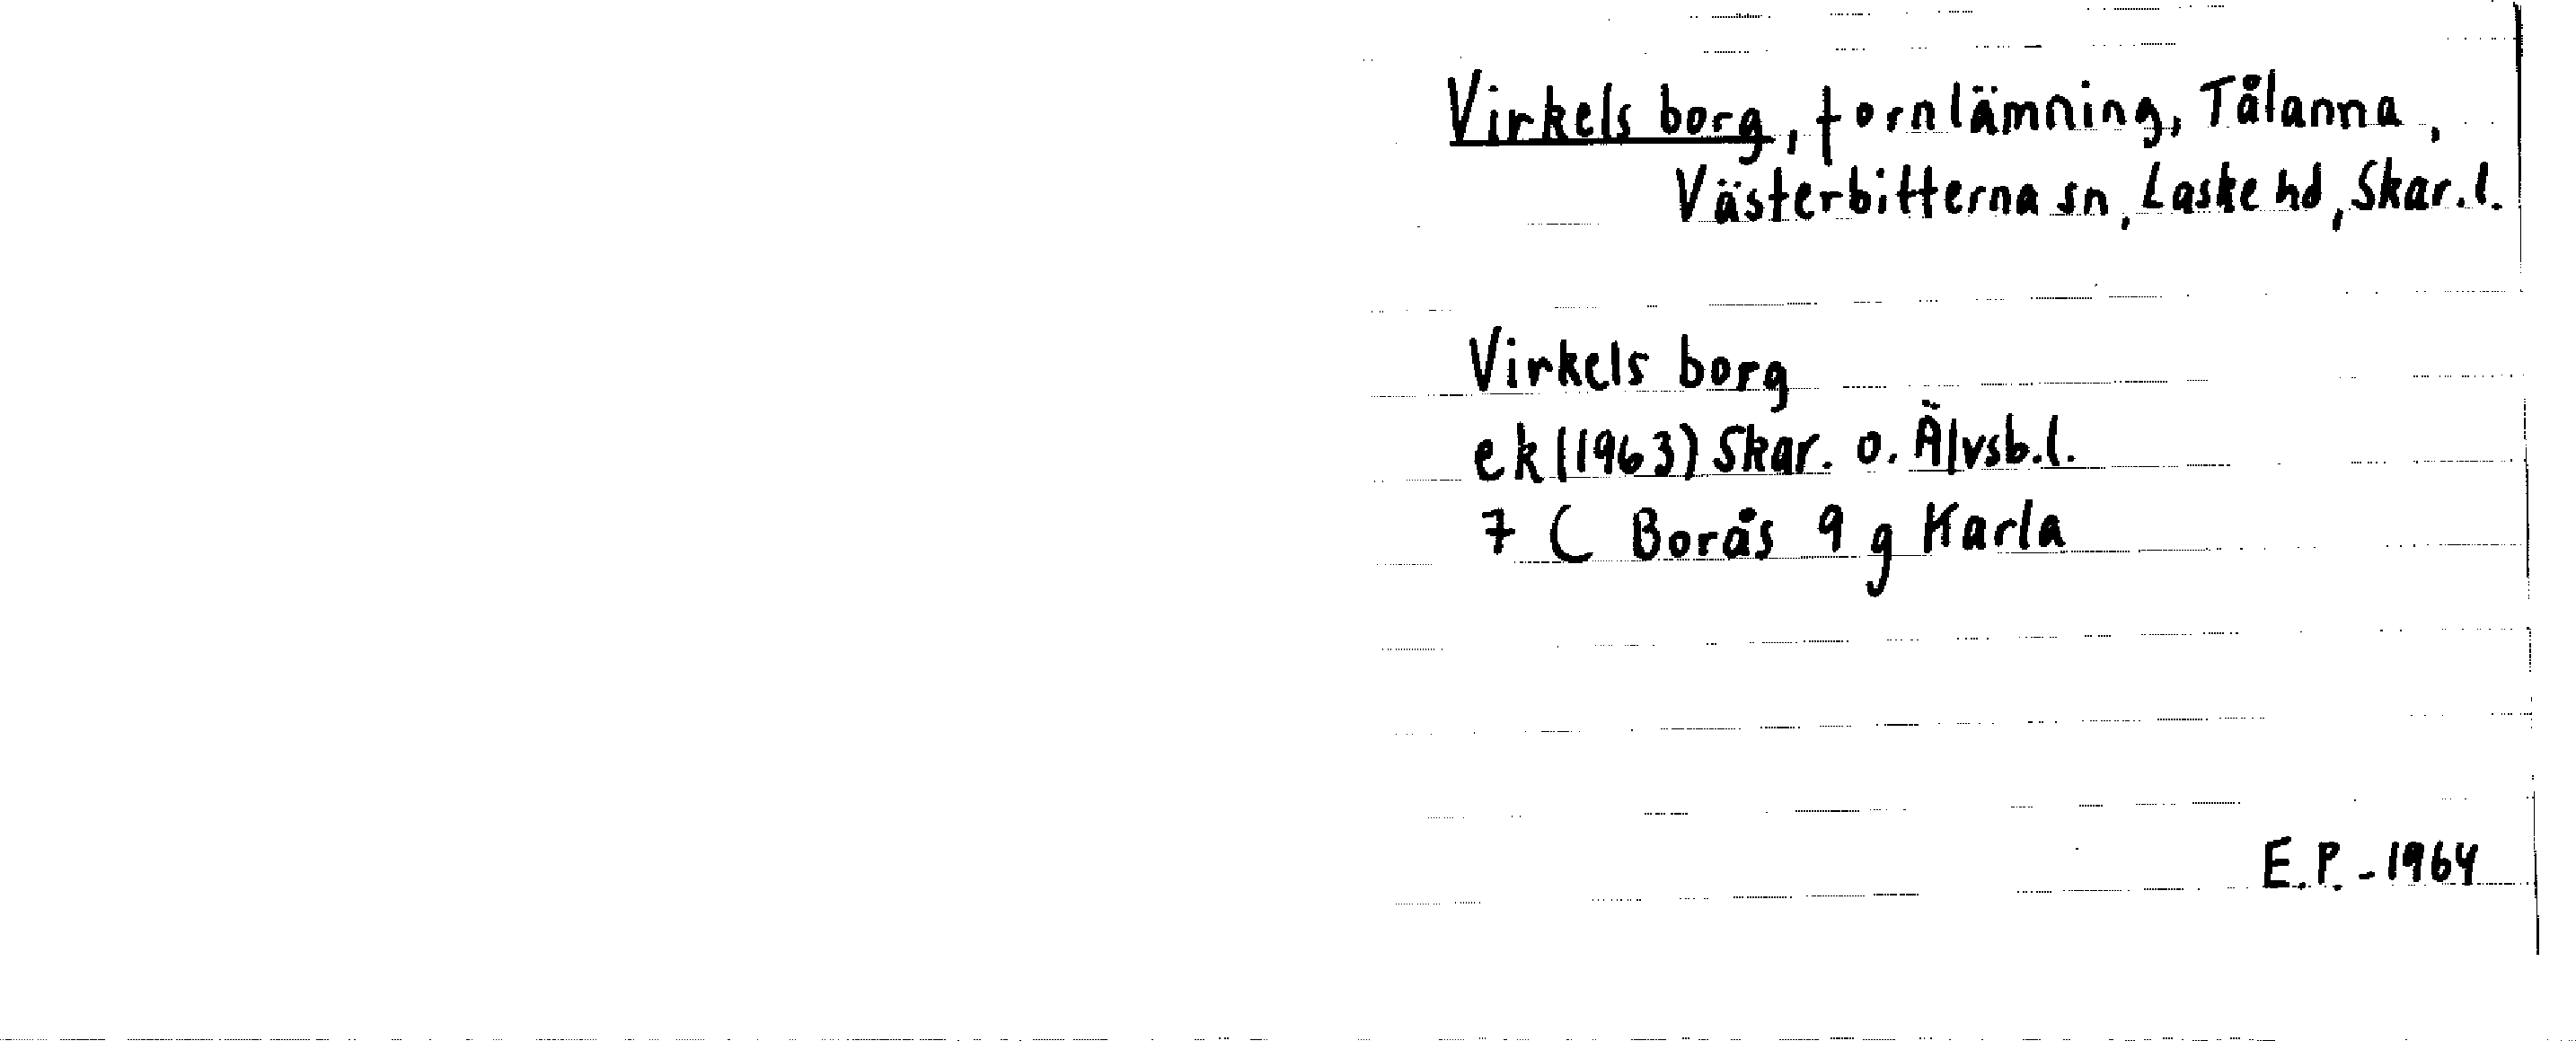 Virkels borg, fornlämning, Tålanna,
Västerbitterna sn, Laske hd, Skar.l.
Virkels borg
ek (1963) Skar. o. Älvsb.l.
7 C Borås 9 g Karla
E.P. - 1964